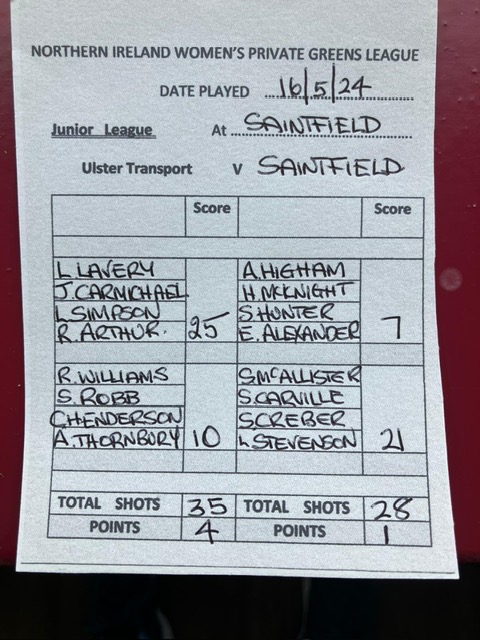 NORTHERN IRELAND WOMEN'S PRIVATE GREENS LEAGUE
DATE PLAYED 16/5/24
Junior League At SAINTFIELD
Ulster Transport V SAINTFIELD
Score Score
L. LAVERY A. HIGHAM
J. CARMICHAEL H. McKNIGHT
L. SIMPSON S. HUNTER
R. ARTHUR. 25 E. ALEXANDER 7
R. WILLIAMS S. McALLISTER
S. ROBB S. CARVILLE
C. HENDERSON S. CREBER
A. THORNBURY 10 L. STEVENSON 21
TOTAL SHOTS 35 TOTAL SHOTS 28
POINTS 4 POINTS 1